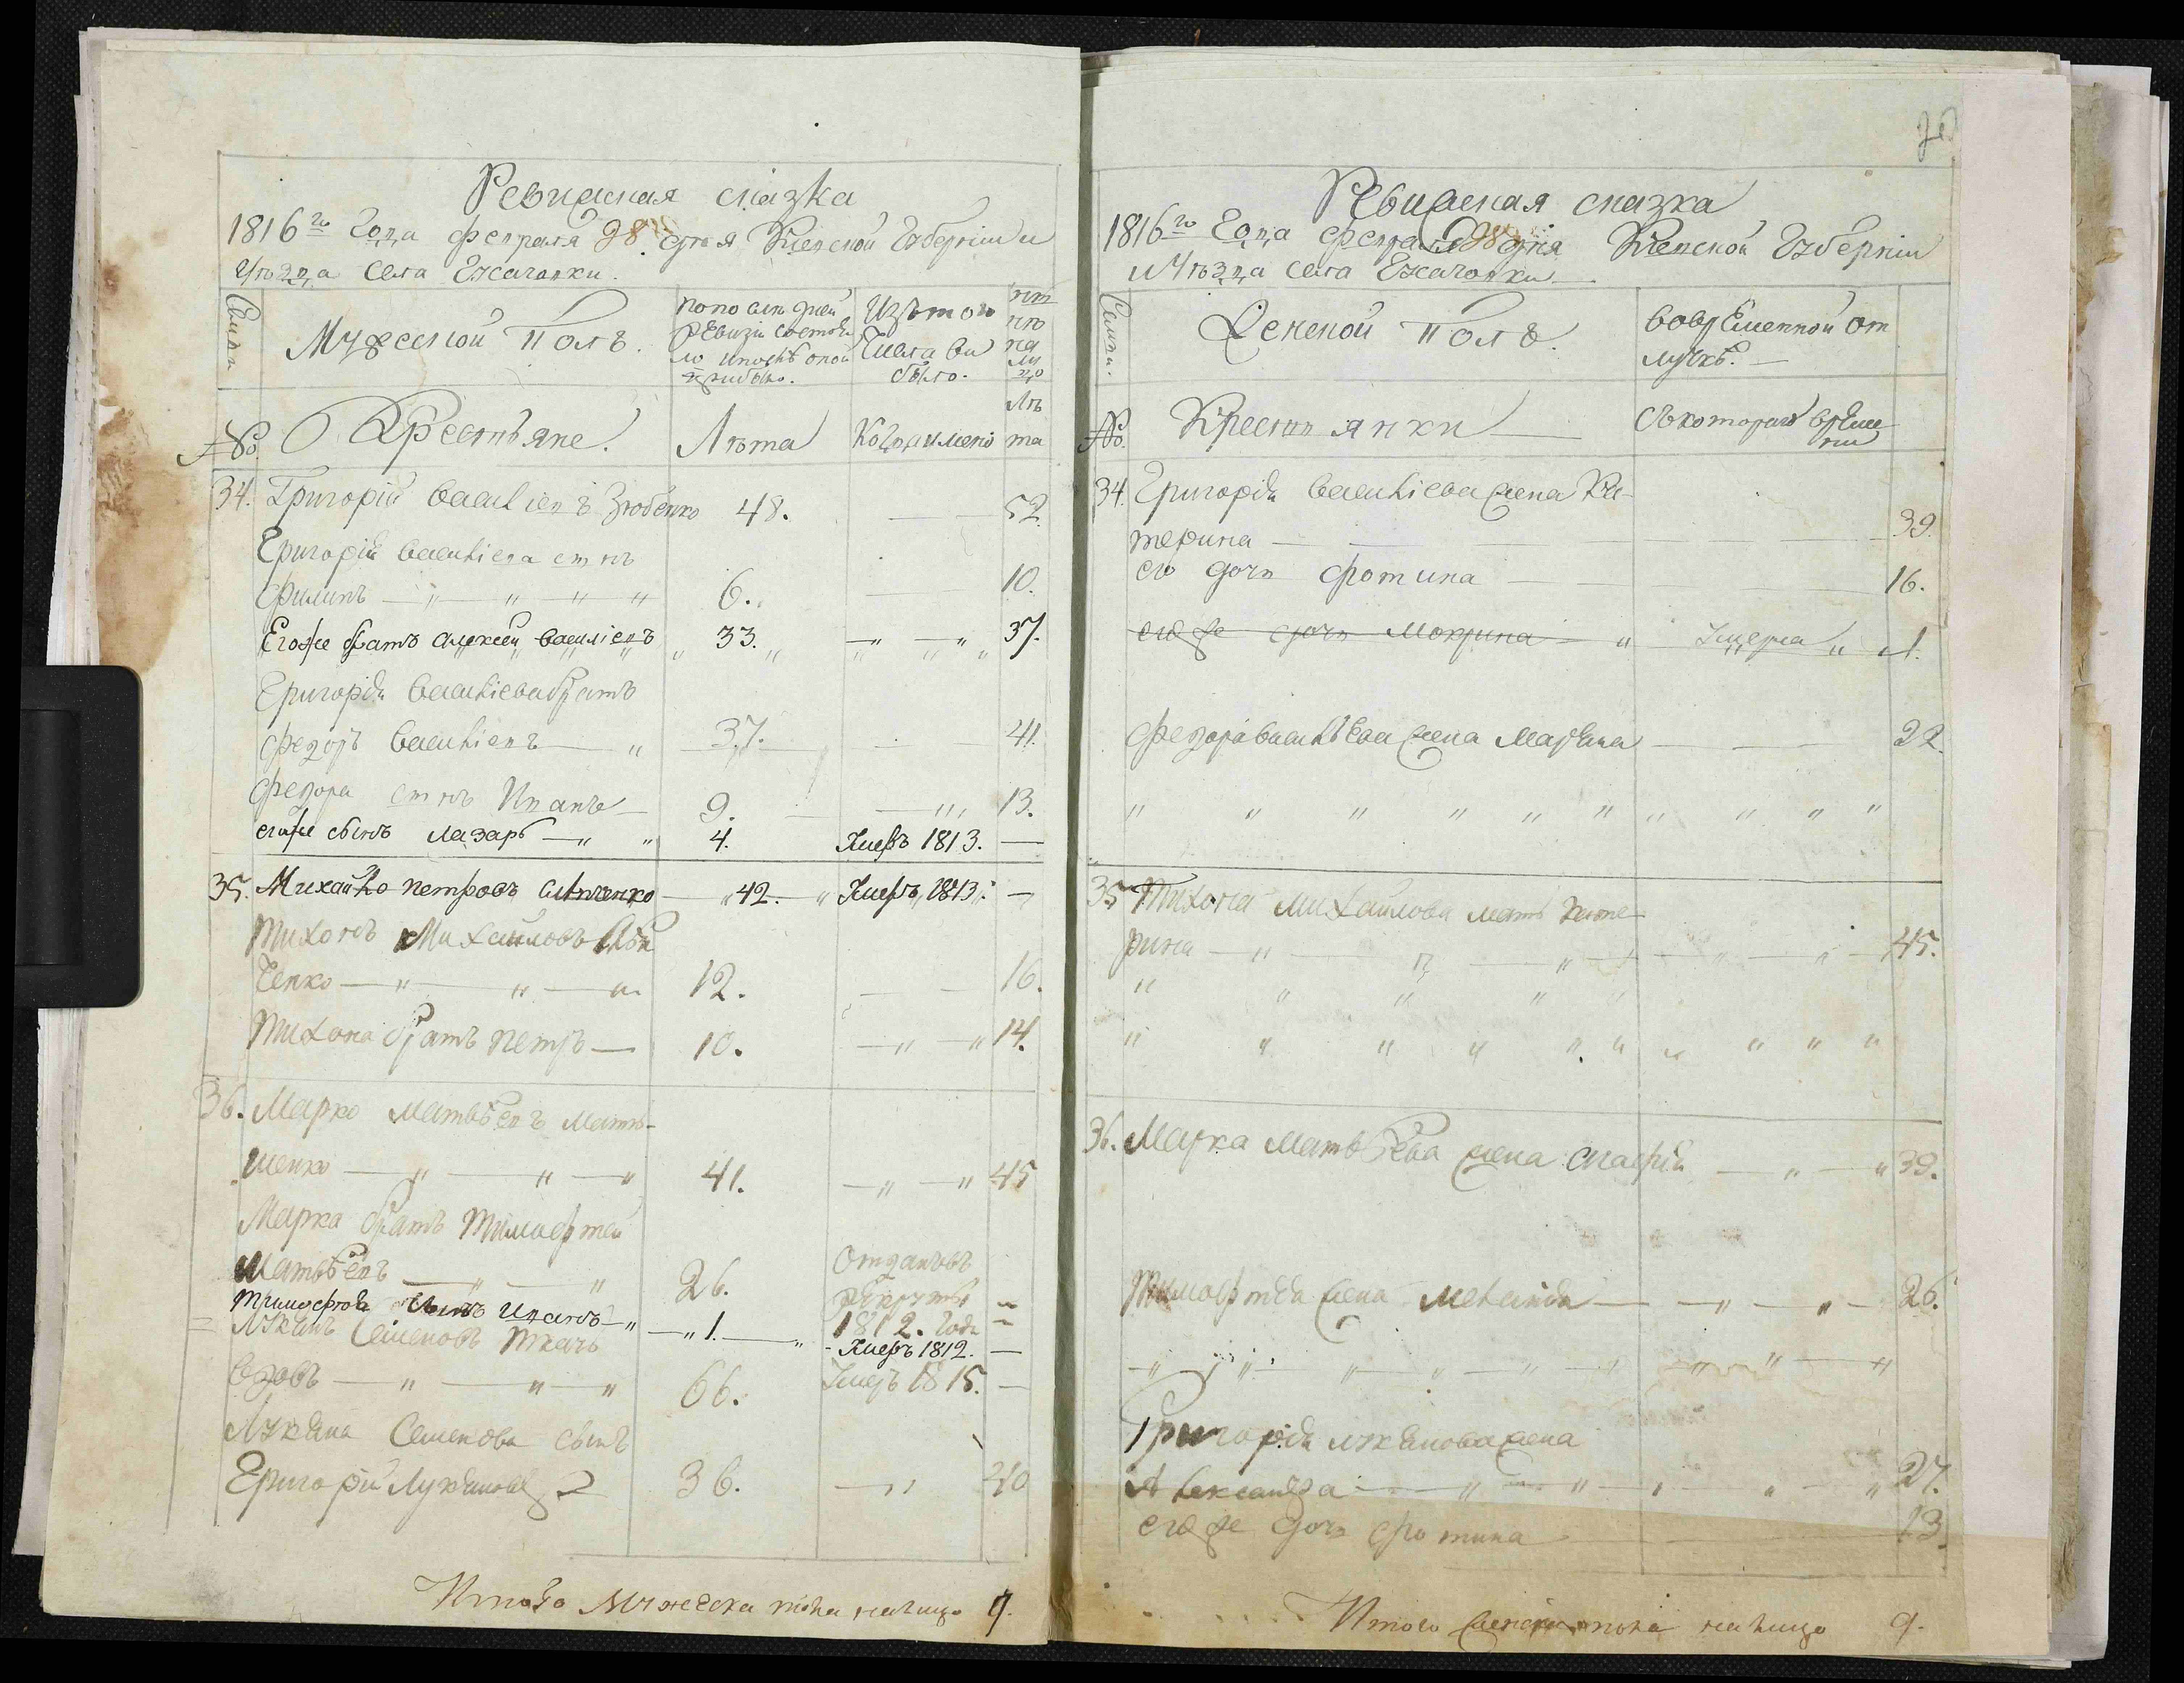 Ревижская сказка
1816го Года февраля 28 дня Киевской Губернии и
Уѣзда Села Ежачовки
Семьи
Мужеской Полъ.
По последней
ревизіи состоя
ло и послѣ оной
прибыло.
Изъ того
Числа вы
было.
Ны
нѣ
на
ли
цо
№
Крестьяне.
Лѣта
Когда именно
Лѣ
та
34. Григорій Васильевъ Зюбенко 48. 52.
Григорія Васильева сынъ
Филипъ 6. 10.
Егоже братъ Алексей Васильевъ 33. 37.
Григорія Васильева братъ
Федоръ Васильевъ 37. 41.
Федора сынъ Иванъ 9. 13.
егоже сынъ Лазарь 4. Умеръ 1813.
35. Михайло Петровъ 42. Умеръ 1813.
Тихонъ Михайловъ
ченко 12. 16.
Тихона братъ Петръ 10. 14.
36. Марко Матвѣевъ Матвѣ-
шенко 41. 45
Марка братъ Тимофѣй
Матвѣевъ 26. Отданъ въ
рекруты
Тимофѣя Сынъ Иванъ 1. 1812. Года
Лукянъ Семеновъ Ткачъ Умеръ 1812.
66. Умеръ 1815.
Лукяна Семенова сынъ
Григорій Лукяновъ 36. 40
Итого Мужеска пола налицо 9.
70
Ревижская сказка
1816го Года февраля 28 дня Киевской Губерніи
и Уѣзда села Ежачовки
Семьи.
Женской Полъ.
Во временной от
лучкѣ.
№
Крестьянки
Съ котораго време
ни
34. Григорія Васильева жена Ка-
терина 39.
его дочь Фотина 16.
егоже дочь Мокрина Умерла 1.
Федора Васильева жена Марьяна 22.
35 Тихона Михайлова мать Кате-
рина 45.
36. Марка Матвѣева жена Гласрія 39.
Тимофѣя жена Меланія 26.
Григорія Лукянова жена
Александра 27.
егоже дочь Фотина 13.
Итого женска пола налицо 9.